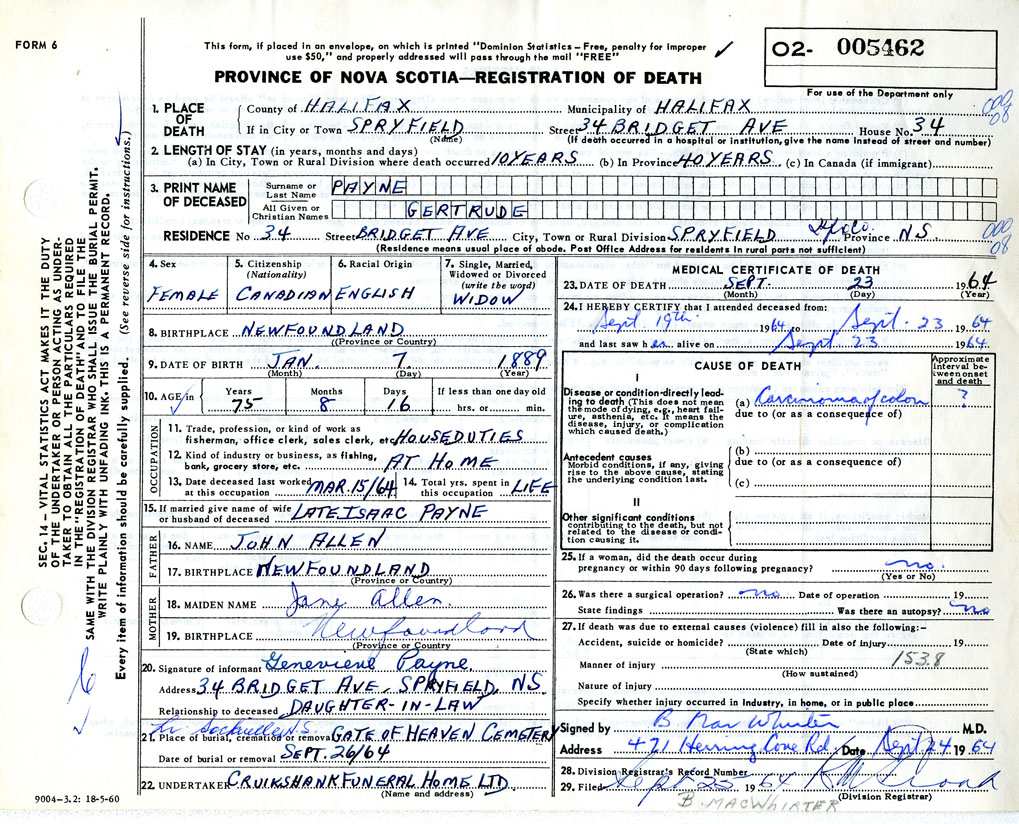 FORM 6
This form, if placed in an envelope, on which is printed "Dominion Statistics—Free, penalty for improper
use $50," and properly addressed will pass through the mail "FREE"
O2- 005462
PROVINCE OF NOVA SCOTIA—REGISTRATION OF DEATH
For use of the Department only
SEC. 14 – VITAL STATISTICS ACT MAKES IT THE DUTY
OF THE UNDERTAKER OR PERSON ACTING AS UNDER-
TAKER TO OBTAIN ALL THE PARTICULARS REQUIRED
IN THE "REGISTRATION OF DEATH" AND TO FILE THE
SAME WITH THE DIVISION REGISTRAR WHO SHALL ISSUE THE BURIAL PERMIT.
WRITE PLAINLY WITH UNFADING INK. THIS IS A PERMANENT RECORD.
Every item of information should be carefully supplied. (See reverse side for instructions.)
1. PLACE OF DEATH
County of HALIFAX Municipality of HALIFAX
If in City or Town SPRYFIELD Street 34 BRIDGET AVE House No. 34
(Name) (If death occurred in a hospital or institution, give the name instead of street and number)
000
08
2. LENGTH OF STAY (in years, months and days)
(a) In City, Town or Rural Division where death occurred 10 YEARS (b) In Province 40 YEARS (c) In Canada (if immigrant)
3. PRINT NAME OF DECEASED
Surname or Last Name PAYNE
All Given or Christian Names GERTRUDE
RESIDENCE No. 34 Street BRIDGET AVE City, Town or Rural Division SPRYFIELD Hfx Co. Province N.S.
(Residence means usual place of abode. Post Office Address for residents in rural parts not sufficient)
000
08
4. Sex
FEMALE
5. Citizenship (Nationality)
CANADIAN
6. Racial Origin
ENGLISH
7. Single, Married, Widowed or Divorced (write the word)
WIDOW
8. BIRTHPLACE NEWFOUNDLAND
(Province or Country)
9. DATE OF BIRTH JAN. 7 1889
(Month) (Day) (Year)
10. AGE in Years Months Days If less than one day old
75 8 16 hrs. or min.
OCCUPATION
11. Trade, profession, or kind of work as
fisherman, office clerk, sales clerk, etc. HOUSEDUTIES
12. Kind of industry or business, as fishing,
bank, grocery store, etc. AT HOME
13. Date deceased last worked at this occupation MAR. 15/64 14. Total yrs. spent in this occupation LIFE
15. If married give name of wife or husband of deceased LATE ISAAC PAYNE
FATHER
16. NAME JOHN ALLEN
17. BIRTHPLACE NEWFOUNDLAND
(Province or Country)
MOTHER
18. MAIDEN NAME Jane Allen.
19. BIRTHPLACE Newfoundland
(Province or Country)
20. Signature of informant Genevieve Payne
Address 34 BRIDGET AVE. SPRYFIELD, NS
Relationship to deceased DAUGHTER-IN-LAW
Lr. Sackville N.S.
21. Place of burial, cremation or removal GATE OF HEAVEN CEMETERY
Date of burial or removal SEPT. 26/64
22. UNDERTAKER CRUIKSHANK FUNERAL HOME LTD.
(Name and address)
9004–3.2: 18-5-60
MEDICAL CERTIFICATE OF DEATH
23. DATE OF DEATH SEPT. 23 1964
(Month) (Day) (Year)
24. I HEREBY CERTIFY that I attended deceased from:
Sept. 19th 1964 to Sept. 23 1964
and last saw her alive on Sept. 23 1964
CAUSE OF DEATH
Approximate interval between onset and death
I
Disease or condition directly leading to death (This does not mean
the mode of dying, e.g., heart failure, asthenia, etc. It means the
disease, injury, or complication
which caused death.)
(a) Carcinoma of colon ?
due to (or as a consequence of)
Antecedent causes
Morbid conditions, if any, giving
rise to the above cause, stating
the underlying condition last.
(b)
due to (or as a consequence of)
(c)
II
Other significant conditions
contributing to the death, but not
related to the disease or condition causing it.
25. If a woman, did the death occur during
pregnancy or within 90 days following pregnancy? no.
(Yes or No)
26. Was there a surgical operation? no. Date of operation 19
State findings Was there an autopsy? no
27. If death was due to external causes (violence) fill in also the following:–
Accident, suicide or homicide? Date of injury 19
(State which)
Manner of injury 153.8
(How sustained)
Nature of injury
Specify whether injury occurred in industry, in home, or in public place
Signed by B MacWhirter M.D.
Address 471 Herring Cove Rd. Date Sept 24 1964
28. Division Registrar's Record Number
29. Filed Sept 25 1964
(Division Registrar)
B. MACWHIRTER